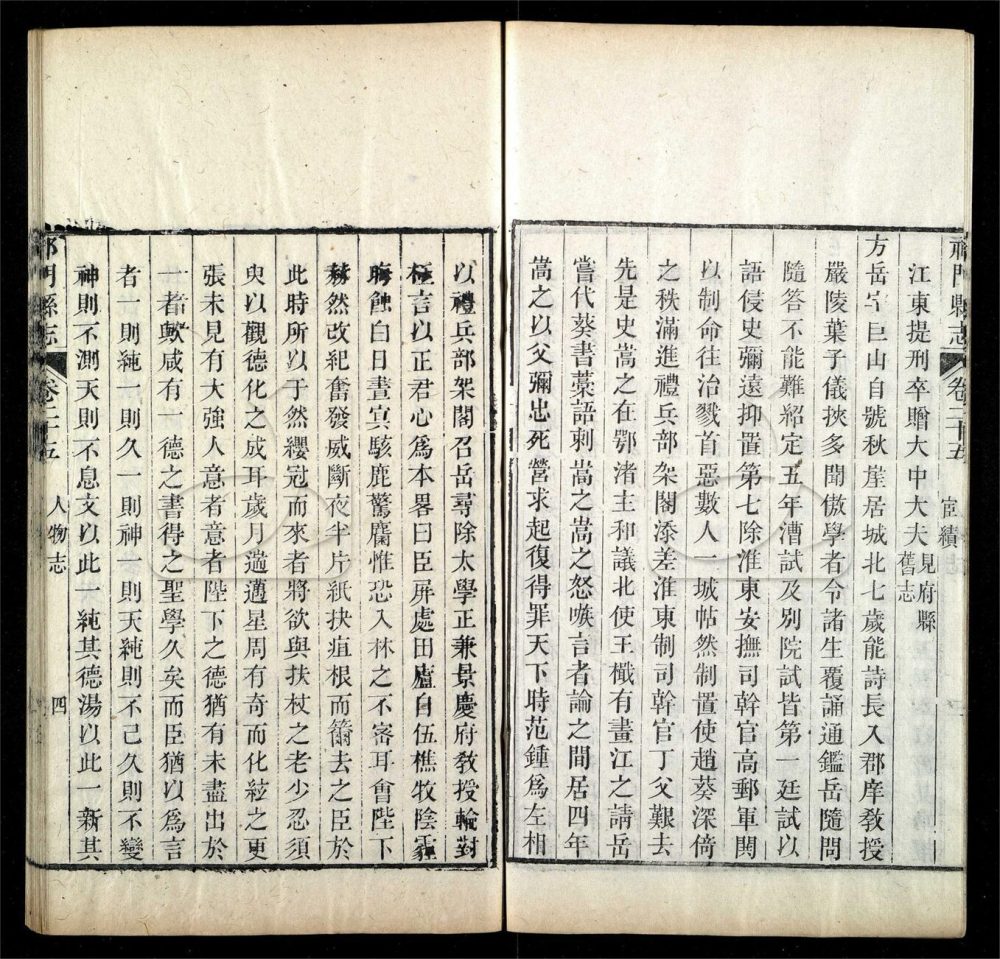 祁門縣志 卷二十五 宦績
江東提刑卒贈大中大夫見府縣舊志
方岳字巨山自號秋崖居城北七歲能詩長入郡庠敎授
嚴陵葉子儀挾多聞傲學者令諸生覆誦通鑑岳隨問
隨答不能難紹定五年漕試及別院試皆第一廷試以
語侵史彌遠抑置第七除淮東安撫司幹官高郵軍閧
以制命往治戮首惡數人一城帖然制置使趙葵深倚
之秩滿進禮兵部架閣添差淮東制司幹官丁父艱去
先是史嵩之在鄂渚主和議北使王檝有畫江之請岳
嘗代葵書藁語刺嵩之嵩之怒嗾言者論之閒居四年
嵩之以父彌忠死營求起復得罪天下時范鍾爲左相
以禮兵部架閣召岳尋除太學正兼景慶府敎授輪對
極言以正君心爲本畧曰臣屏處田廬自伍樵牧陰霾
晦蝕白日晝冥駭鹿驚麕惟恐入林之不密耳會陛下
赫然改紀奮發威斷夜半片紙抉疽根而籋去之臣於
此時所以于然纓冠而來者將欲與扶杖之老少忍須
臾以觀德化之成耳歲月遒邁星周有奇而化絃之更
張未見有大強人意者意者陛下之德猶有未盡出於
一者歟咸有一德之書得之聖學久矣而臣猶以為言
者一則純一則久一則神一則天純則不已久則不變
神則不測天則不息文以此一純其德湯以此一新其
祁門縣志 卷二十五 人物志 四